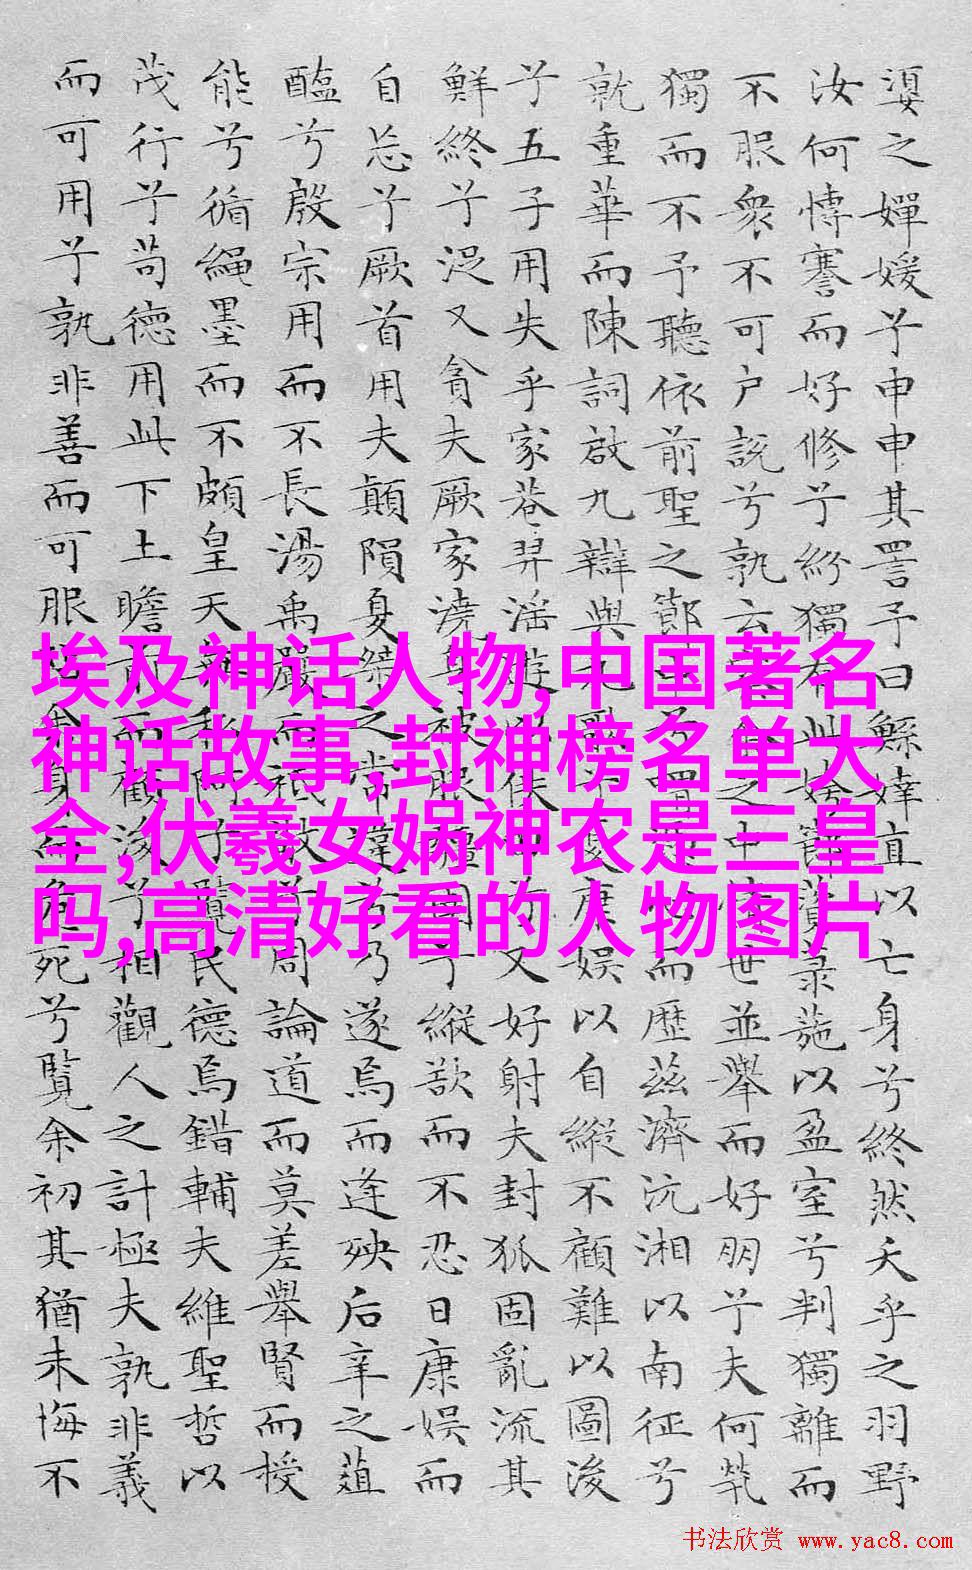 嬃之嬋媛兮申申其詈予曰鯀婞直以亡身兮終然夭乎之羽野
汝何博謇而好修兮紛獨有此姱節薋菉葹以盈室兮判獨離而
不服衆不可户說兮孰云察余之中情世並舉而好朋兮夫何煢
獨而不予聽依前聖之節中兮喟憑心而歷茲濟沅湘以南征兮
就重華而陳詞啟九辯與九歌兮夏康娛以自縱不顧難以圖後
兮五子用失乎家巷羿淫遊以佚畋兮又好射夫封狐固亂流其
鮮終兮浞又貪夫厥家澆身被服強圉兮縱欲而不忍日康娛而
自忘兮厥首用夫顛隕夏桀之常違兮乃遂焉而逢殃后辛之菹
醢兮殷宗用而不長湯禹嚴而祗敬兮周論道而莫差舉賢而授
能兮循繩墨而不頗皇天無私阿兮覽民德焉錯輔夫維聖哲以
茂行兮苟德用此下土瞻前而顧後兮相觀人之計極夫孰非義
而可用兮孰非善而可服阽余身而危死兮覽余初其猶未悔不
埃及神话人物,中国著名
神话故事,封神榜名单大
全,伏羲女娲神农是三皇
吗,高清好看的人物图片
书法欣赏 www.yac8.com